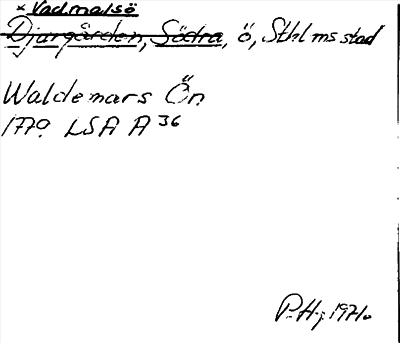 × Vadmalsö
Djurgården, Södra, ö, Sthlms stad
Waldemars Ön
1770 LSA A 36
P.Hj 1971.